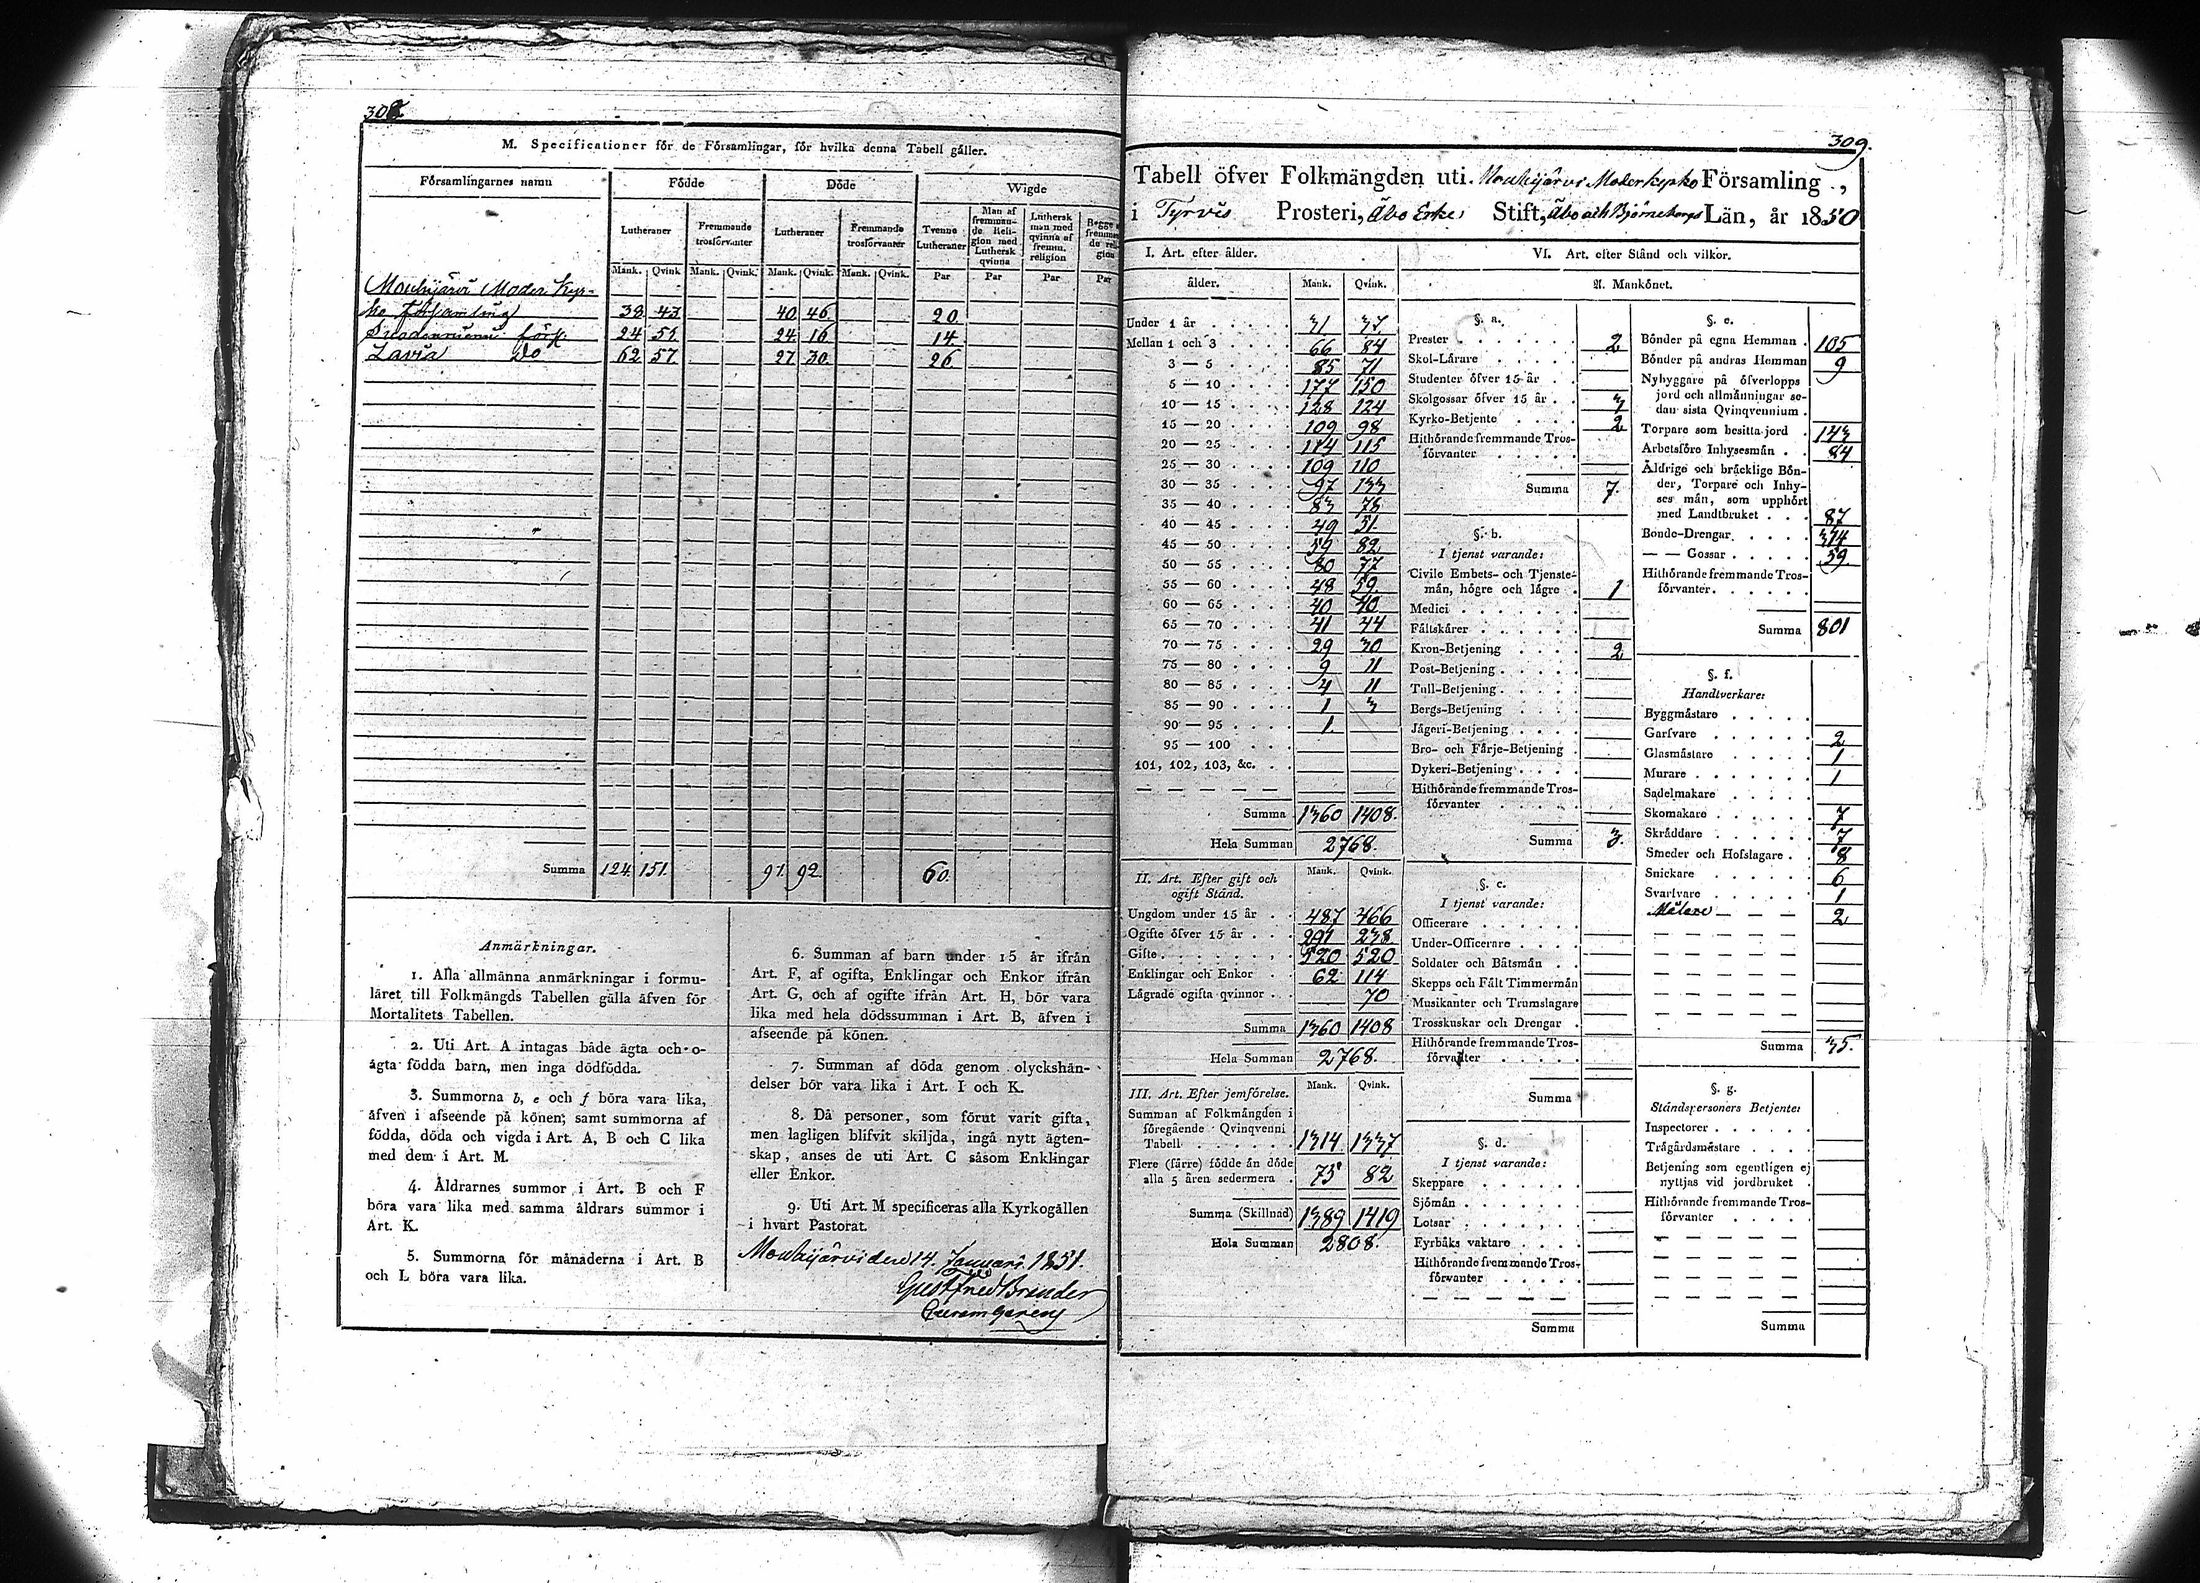 308
M. Specificationer för de Församlingar, för hvilka denna Tabell gäller.
Församlingarnes namn Födde Döde Wigde
Lutheraner Fremmande trosförvanter Lutheraner Fremmande trosförvanter Tvenne Lutheraner Man af fremmande Religion med Luthersk qvinna Luthersk man med qvinna af fremm. religion Begge fremmande religion
Mank. Qvink. Mank. Qvink. Mank. Qvink. Mank. Qvink. Par Par Par Par
Mouhijärvi Moder Kyr-
ko Församling 38 43 40 46 20
Suodenniemi förs. 24 51 24 16 14
Lavia Do 62 57 27 30 26
Summa 124 151 91 92 60
Anmärkningar.
1. Alla allmänna anmärkningar i formu-
läret till Folkmängds Tabellen gälla äfven för
Mortalitets Tabellen.
2. Uti Art. A intagas både ägta och o-
ägta födda barn, men inga dödfödda.
3. Summorna b, e och f böra vara lika,
äfven i afseende på könen; samt summorna af
födda, döda och vigda i Art. A, B och C lika
med dem i Art. M.
4. Åldrarnes summor i Art. B och F
böra vara lika med samma åldrars summor i
Art. K.
5. Summorna för månaderna i Art. B
och L böra vara lika.
6. Summan af barn under 15 år ifrån
Art. F, af ogifta, Enklingar och Enkor ifrån
Art. G, och af ogifte ifrån Art. H, bör vara
lika med hela dödssumman i Art. B, äfven i
afseende på könen.
7. Summan af döda genom olyckshän-
delser bör vara lika i Art. I och K.
8. Då personer, som förut varit gifta,
men lagligen blifvit skiljda, ingå nytt ägten-
skap, anses de uti Art. C såsom Enklingar
eller Enkor.
9. Uti Art. M specificeras alla Kyrkogällen
i hvart Pastorat.
Mouhijärvi den 14. Januari 1851.
Gust. Fred Brander
309.
Tabell öfver Folkmängden uti Mouhijärvi Moderkyrko Församling,
i Tyrvis Prosteri, Åbo Erke Stift, Åbo och Björneborgs Län, år 1850
I. Art. efter ålder.
ålder. Mank. Qvink.
Under 1 år 31 37
Mellan 1 och 3 66 84
3 — 5 85 71
5 — 10 177 150
10 — 15 128 124
15 — 20 109 98
20 — 25 114 115
25 — 30 109 110
30 — 35 97 133
35 — 40 83 78
40 — 45 49 51
45 — 50 59 82
50 — 55 80 77
55 — 60 48 59
60 — 65 40 40
65 — 70 41 44
70 — 75 29 30
75 — 80 9 11
80 — 85 4 11
85 — 90 1 3
90 — 95 1
95 — 100
101, 102, 103, &c.
Summa 1360 1408
Hela Summan 2768.
II. Art. Efter gift och ogift Stånd. Mank. Qvink.
Ungdom under 15 år 487 466
Ogifte öfver 15 år 291 238
Gifte 520 520
Enklingar och Enkor 62 114
Lägrade ogifta qvinnor 70
Summa 1360 1408
Hela Summan 2768.
III. Art. Efter jemförelse. Mank. Qvink.
Summan af Folkmängden i
föregående Qvinqvenni
Tabell 1314 1337
Flere (färre) födde än döde
alla 5 åren sedermera 75 82
Summa (Skillnad) 1389 1419
Hela Summan 2808.
VI. Art. efter Stånd och vilkor.
A. Mankönet.
§. a.
Prester 2
Skol-Lärare
Studenter öfver 15 år
Skolgossar öfver 15 år 3
Kyrko-Betjente 2
Hithörande fremmande Tros-
förvanter
Summa 7.
§. b.
I tjenst varande:
Civile Embets- och Tjenste-
män, högre och lägre 1
Medici
Fältskärer
Kron-Betjening 2
Post-Betjening
Tull-Betjening
Bergs-Betjening
Jägeri-Betjening
Bro- och Färje-Betjening
Dykeri-Betjening
Hithörande fremmande Tros-
förvanter
Summa 3.
§. c.
I tjenst varande:
Officerare
Under-Officerare
Soldater och Båtsmän
Skepps och Fält Timmermän
Musikanter och Trumslagare
Trosskuskar och Drengar
Hithörande fremmande Tros-
förvanter
Summa
§. d.
I tjenst varande:
Skeppare
Sjömän
Lotsar
Fyrbåks vaktare
Hithörande fremmande Tros-
förvanter
Summa
§. e.
Bönder på egna Hemman 105
Bönder på andras Hemman 9
Nybyggare på öfverlopps
jord och allmänningar se-
dan sista Qvinqvennium
Torpare som besitta jord 143
Arbetsföre Inhysesmän 84
Åldrige och bräcklige Bön-
der, Torpare och Inhy-
ses män, som upphört
med Landtbruket 87
Bonde-Drengar 314
— — Gossar 59
Hithörande fremmande Tros-
förvanter
Summa 801
§. f.
Handtverkare:
Byggmästare
Garfvare 2
Glasmästare 1
Murare 1
Sadelmakare
Skomakare 7
Skräddare 7
Smeder och Hofslagare 8
Snickare 6
Svarfvare 1
Målare 2
Summa 35.
§. g.
Ståndspersoners Betjente:
Inspectorer
Trägårdsmästare
Betjening som egentligen ej
nyttjas vid jordbruket
Hithörande fremmande Tros-
förvanter
Summa